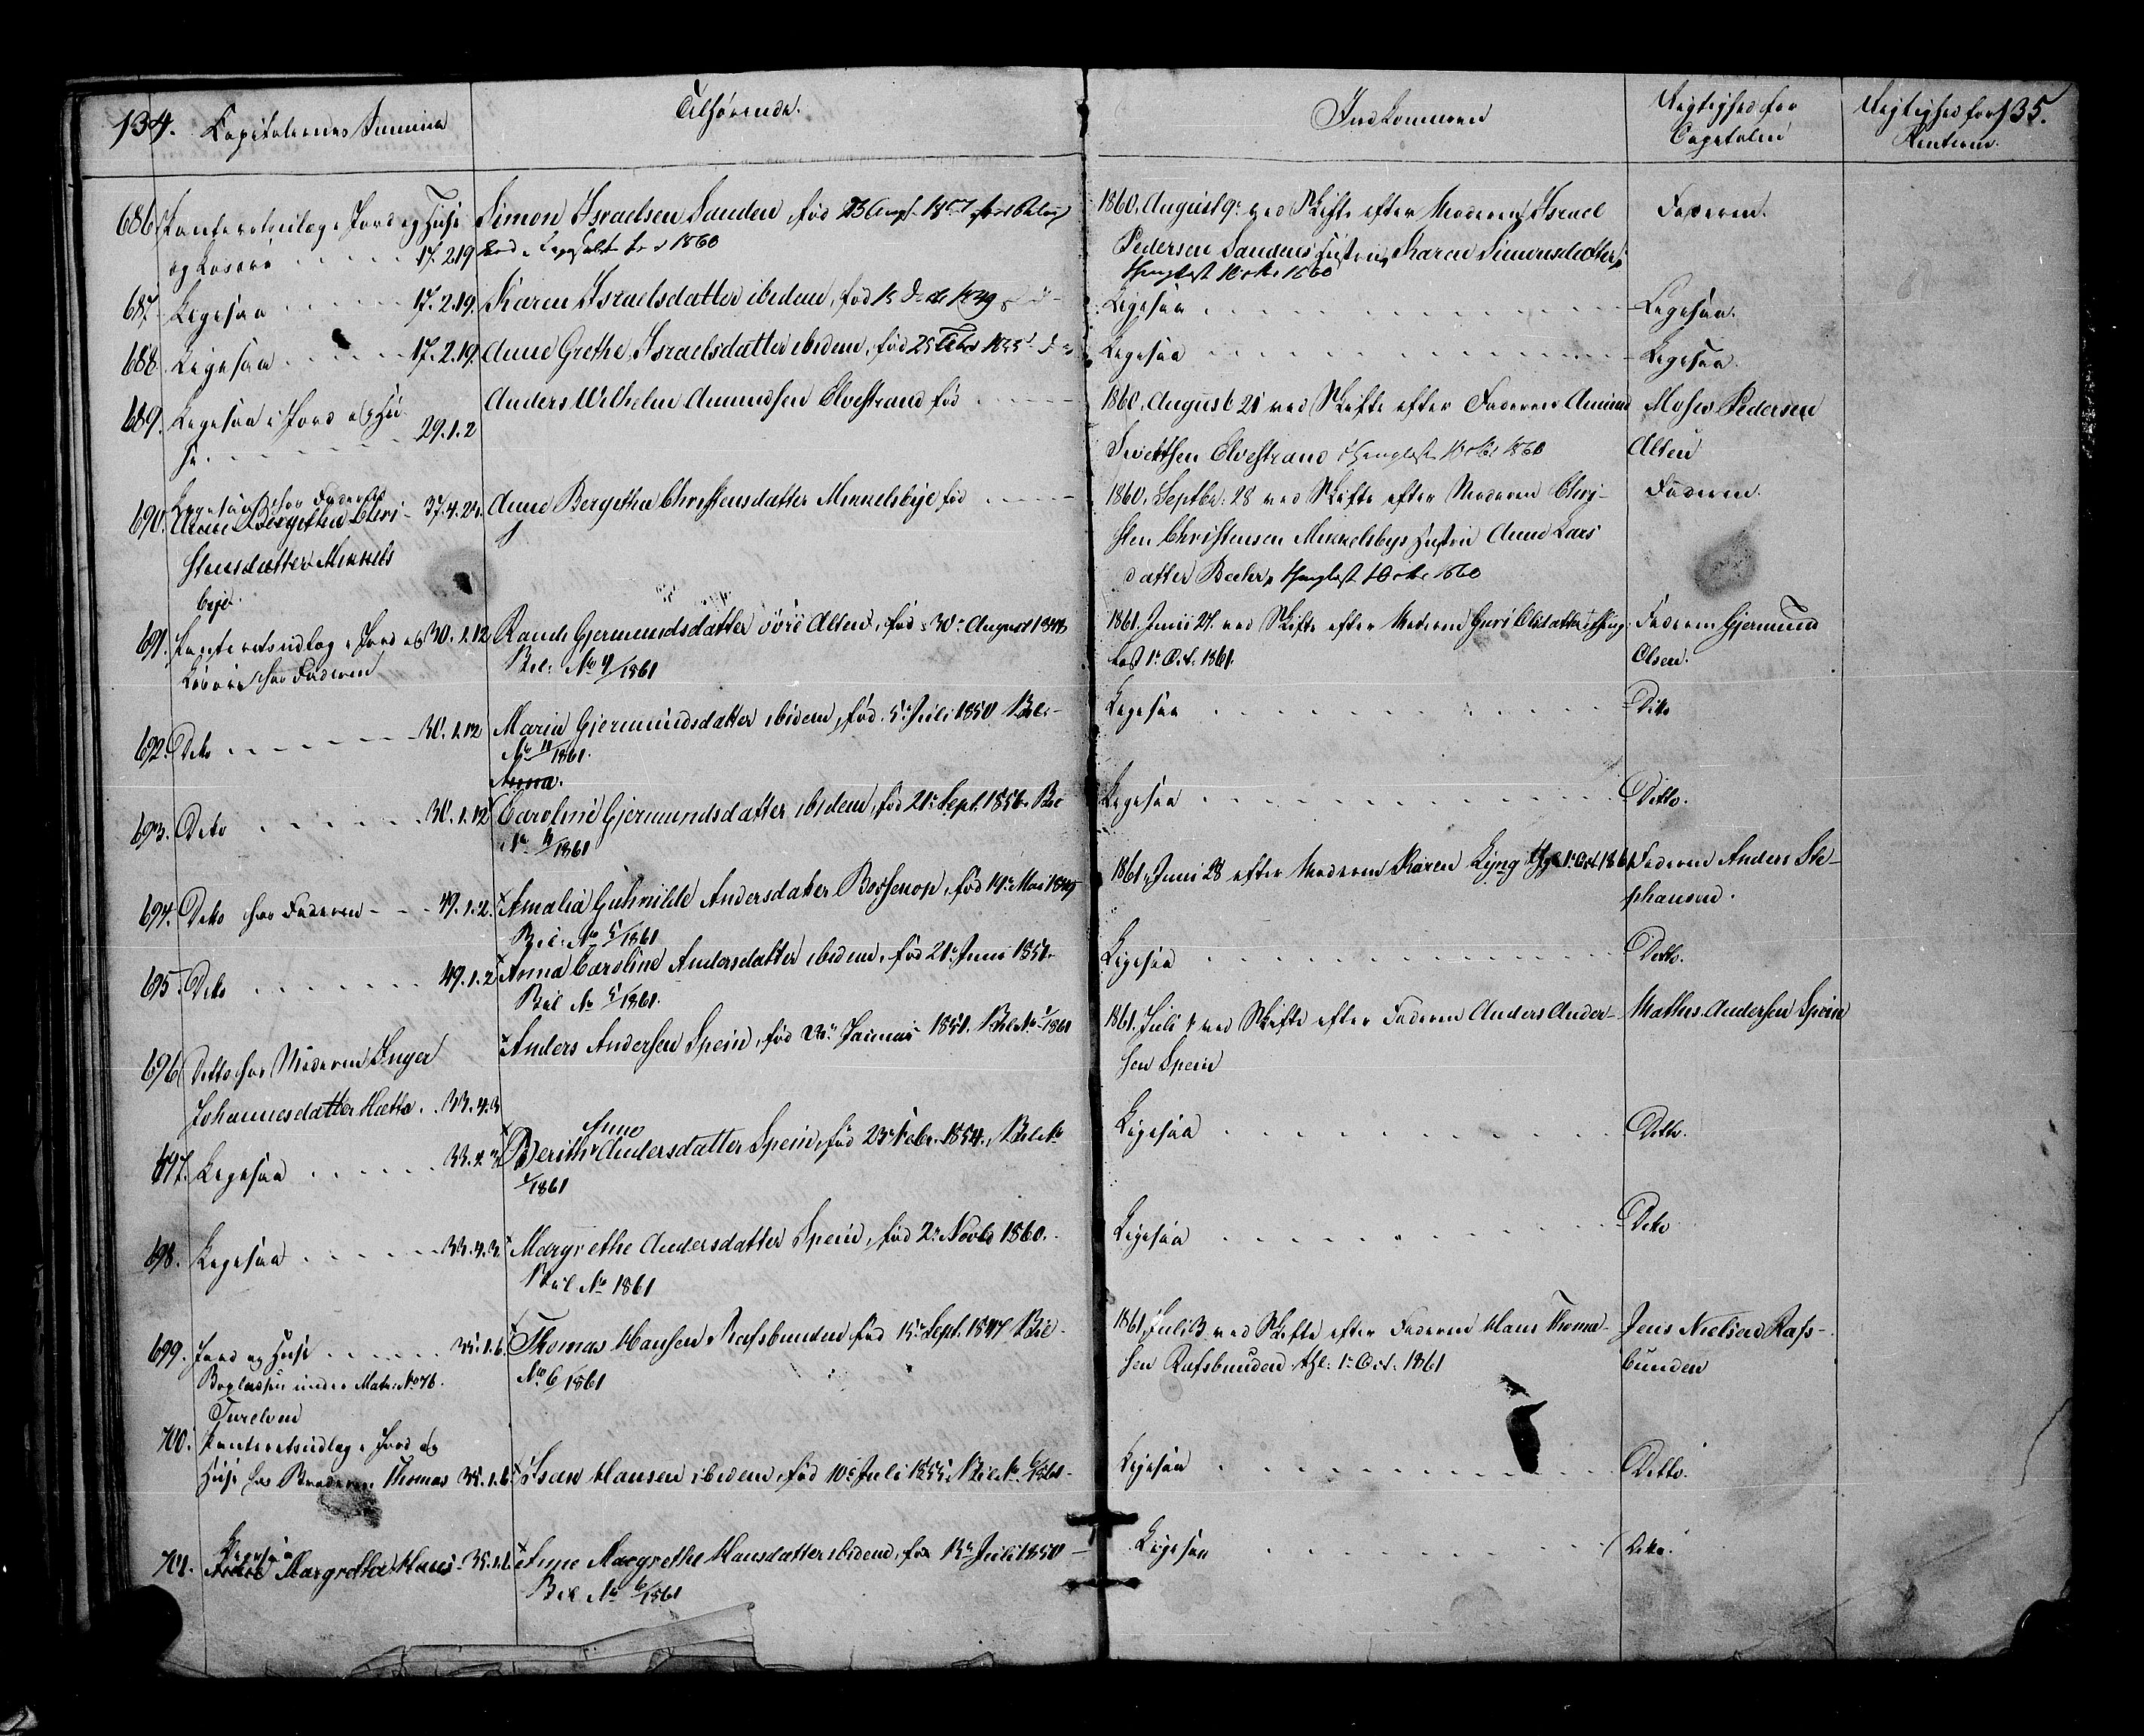 134. Capitalernes Summa
Tilhørende.
Indkommen
Rigtighed for
Capitalen
Rigtighed for 135.
Renterne.
686. Panteretsudlæg i Jord og Huse
og Løsøre . . . . . 17. 2. 19
Simon Israelsen Sanden, fød 23 Aug
1860
1860. August 9 ved Skifte efter Moderen Israel
Pedersen Sandens Hustru, Karen Simonsdatter,
thinglæst 1860
Faderen.
687. Ligesaa . . . . . 17. 2. 19.
Karen Israelsdatter ibidem, fød
Ligesaa . . . . .
Ligesaa.
688. Ligesaa . . . . . 17. 2. 19.
Anne Grethe Israelsdatter ibidem, fød 25 Febr
Ligesaa . . . . .
Ligesaa.
689. Ligesaa i Jord og Hu-
se . . . . . 29. 1. 2
Anders Wilhelm Amundsen Elvestrand fød . . .
1860. August 21 ved Skifte efter Faderen Amund
Elvestrand thinglæst 1860
Moses Pedersen
Alten
690. Ligesaa hos Faderen
Anne Bergitha Chri- 37. 4. 21.
stensdatter Mikkels
bye.
Anne Bergitha Christensdatter Mikkelsbye fød . . .
1860. Septbr. 28 ved Skifte efter Moderen Chri-
sten Christensen Mikkelsbys Hustru Anne Lars
datter Bæhr, thinglæst 1860
Faderen.
691. Panteretsudlæg i Jord og 30. 1. 12
Løsøre hos Faderen
Rande Gjermundsdatter Alten, fød 30 August 1848
Bil. No 4/1861
1861. Juni 27. ved Skifte efter Moderen Guri Olsdatter thing-
læst 1 Oct. 1861.
Faderen Gjermund
Olsen.
692. Dito . . . . . 30. 1. 12
Maria Gjermundsdatter ibidem, fød 5 Juli 1850 Bil.
No 4/1861.
Ligesaa . . . . .
Dito
Anna.
693. Dito . . . . . 30. 1. 12
Caroline Gjermundsdatter ibidem, fød 21 Sept. 1856. Bil
No 4/1861
Ligesaa . . . . .
Ditto.
694. Dito hos Faderen - - - 49. 1. 2.
Amalia Gunhilde Andersdatter Bossenop, fød 14 Mai 1849
Bil. No 5/1861
1861, Juni 28 efter Moderen Karen Lyng thgl 1 Oct. 1861
Faderen Anders Ste-
phansen.
695. Dito . . . . . 49. 1. 2
Anna Caroline Andersdatter ibidem, fød 21 Juni 1851.
Bil No 5/1861.
Ligesaa . . . . .
Ditto.
696. Ditto hos Moderen Inger
Johannesdatter Hætta . . 33. 4. 3
Anders Andersen Spein, fød Januar 1851. Bil No /1861
1861. Juli ved Skifte efter Faderen Anders Ander-
sen Spein
Mathis Andersen Spein
697. Ligesaa . . . . . 33. 4. 3.
Anne
Berith Andersdatter Spein, fød 23 Febr. 1854, Bil No
/1861
Ligesaa . . . . .
Ditto.
698. Ligesaa . . . . . 33. 4. 3.
Margrethe Andersdatter Spein, fød 2 Novb 1860.
Bil No 1861
Ligesaa . . . . .
Dito
699. Jord og Huse . . . . . 35. 1. 6.
Bopladsen under Matr. No 76.
Turelven
Thomas Hansen Rafsbunden fød 15 Sept. 1847 Bil
No 6/1861
1861, Juli 3 ved Skifte efter Faderen Hans Thoma-
sen Rafsbunden thl: 1 Oct. 1861
Jens Nielsen Rafs-
bunden
700. Panteretsudlæg i Jord og
Huse hos Broderen Thomas 35. 1. 6.
Isau Hansen ibidem, fød 10 Juli 1855, Bil No 6/1861
Ligesaa . . . . .
Ditto.
701. Ligesaa
Margretha Hans- 35. 1. 6
Anne Margrethe Hansdatter ibidem, fød 13 Juli 1850
Bil No 6/1861
Ligesaa . . . . .
Dito.